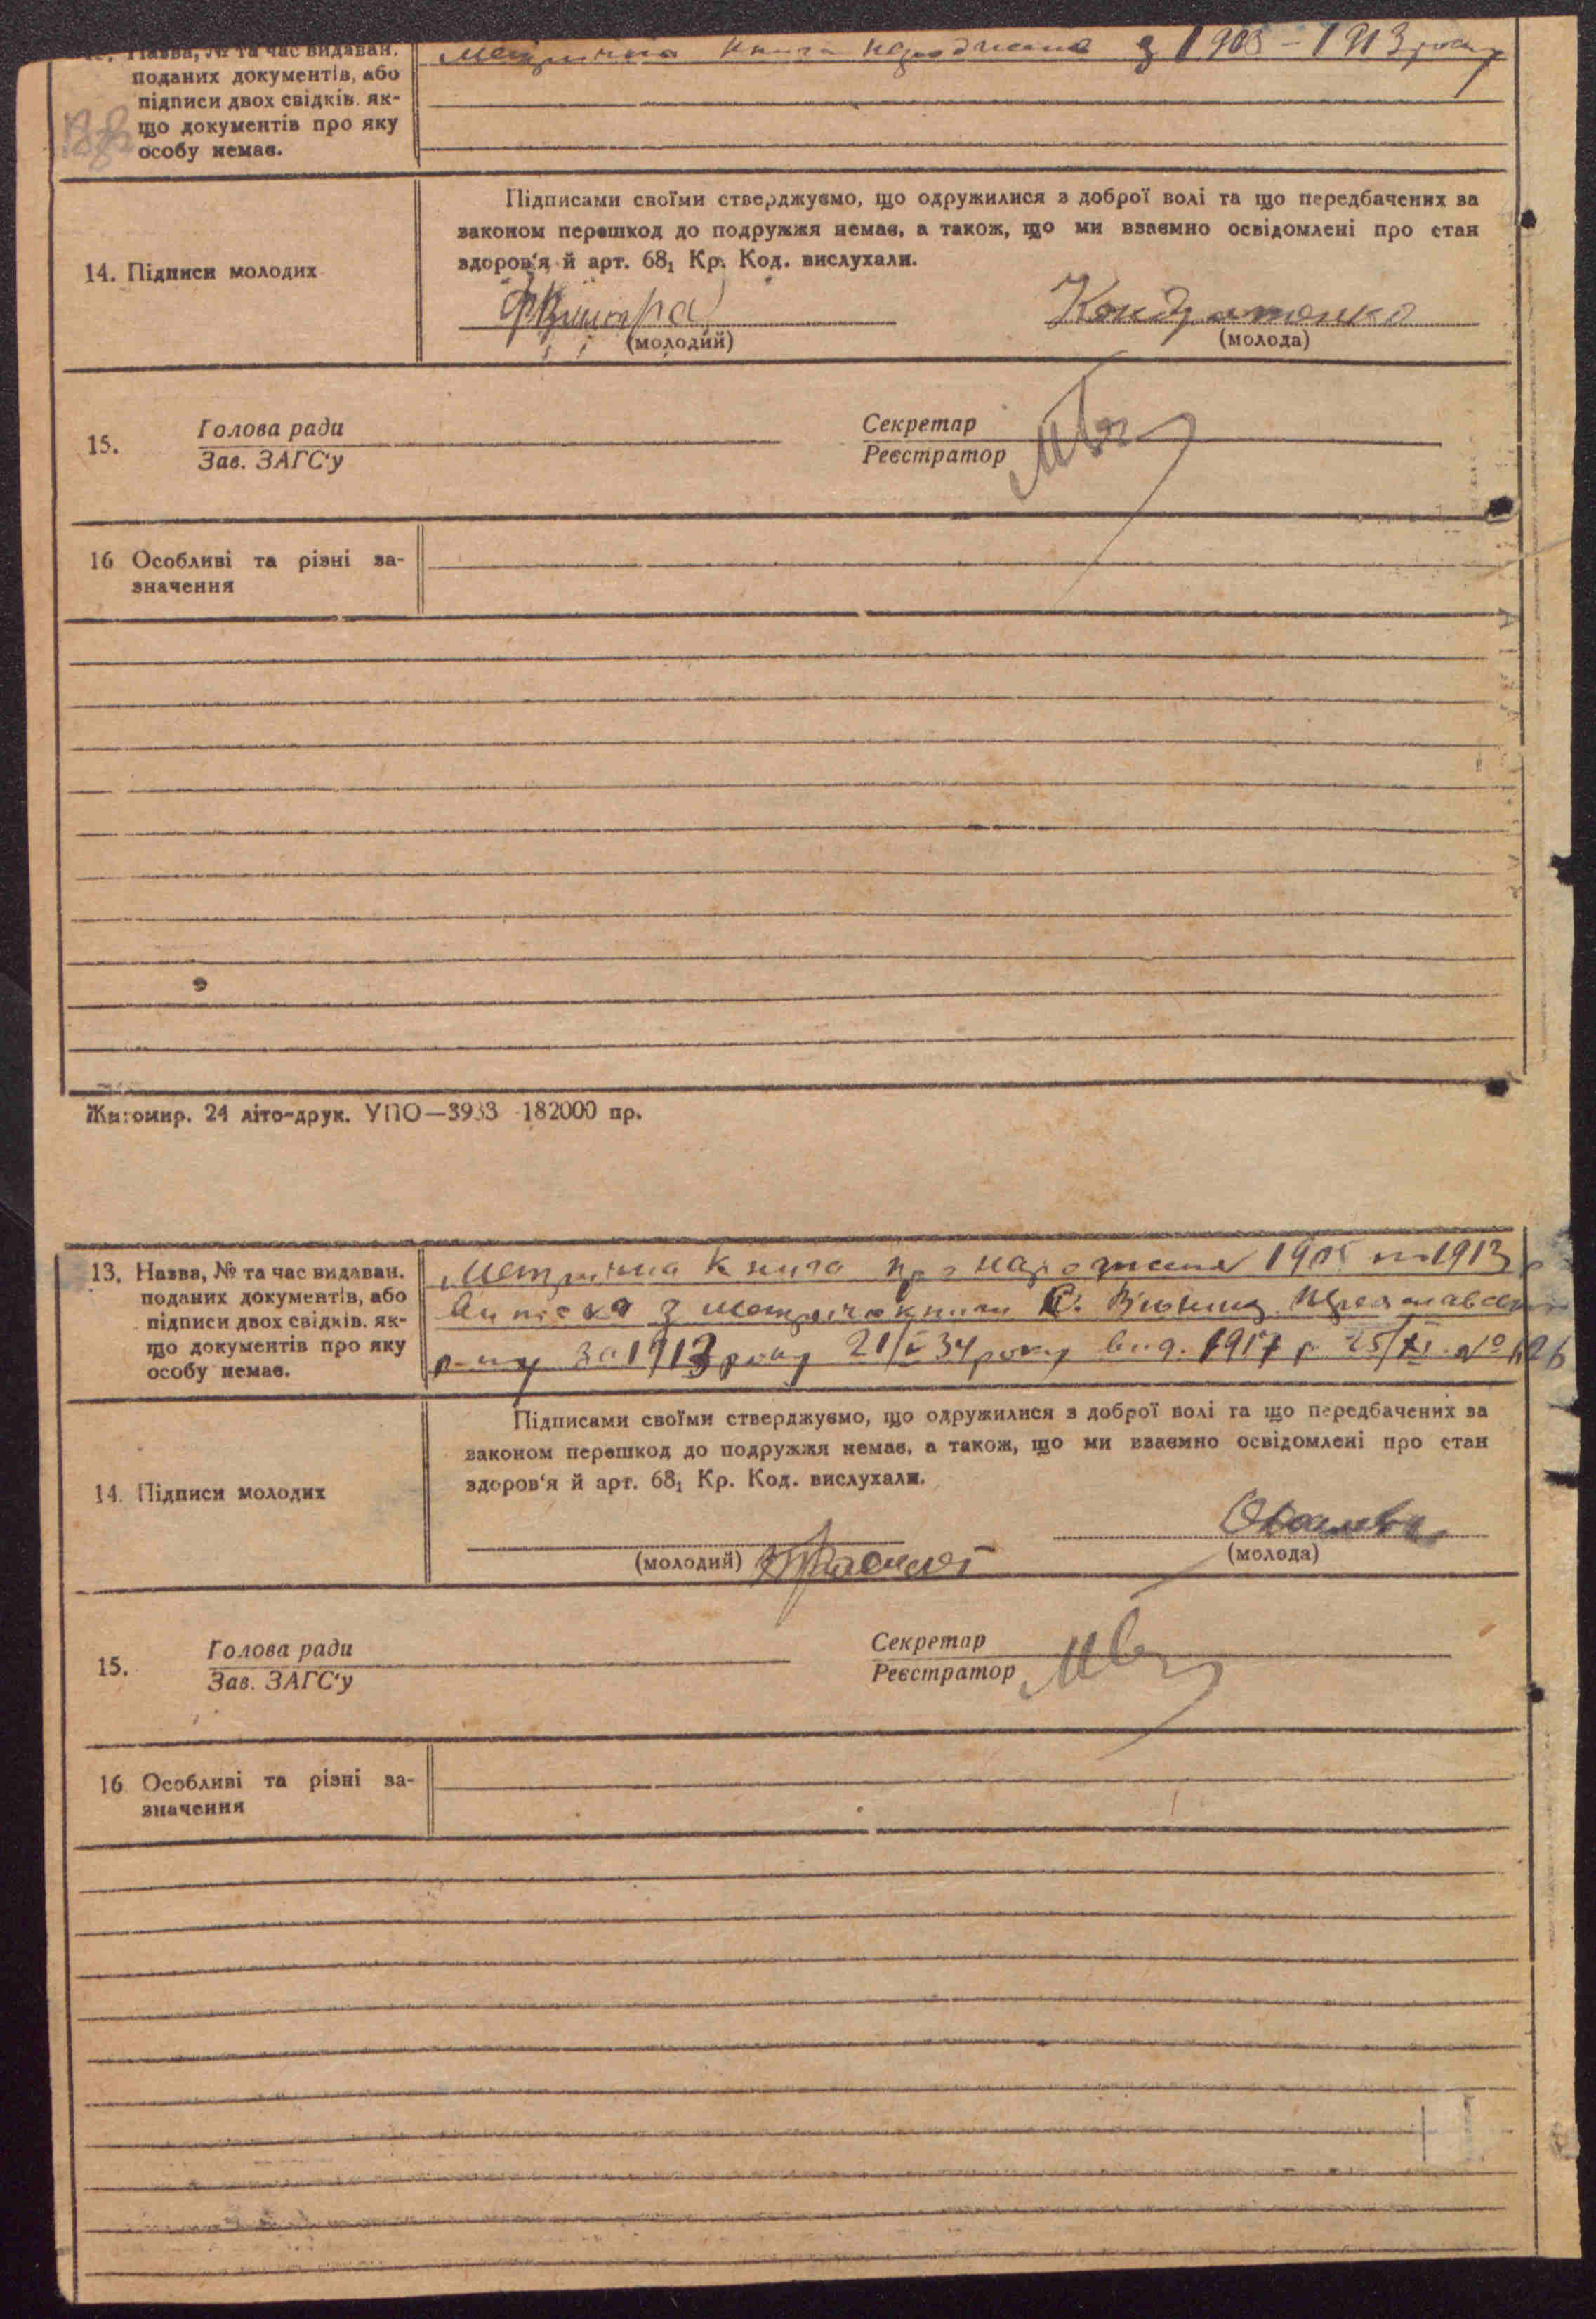 13. Назва, № та час видаван.
поданих документів, або
підписи двох свідків, як-
що документів про яку
особу немає.
Метрична книга народження з 1908 – 1913 року
14. Підписи молодих
Підписами своїми стверджуємо, що одружилися з доброї волі та що передбачених за
законом перешкод до подружжя немає, а також, що ми взаємно освідомлені про стан
здоров'я й арт. 68₁ Кр. Код. вислухали.
Кондратенко
(молодий)
(молода)
15.
Голова ради
Зав. ЗАГС'у
Секретар
Реєстратор
16 Особливі та різні за-
значення
Житомир. 24 літо-друк. УПО—3933 182000 пр.
13. Назва, № та час видаван.
поданих документів, або
підписи двох свідків, як-
що документів про яку
особу немає.
Метрична книга про народження 1905 по 1913
Виписка з
за 1913 року 21/V 34 року вид. 1917 р. 25/XI №
14. Підписи молодих
Підписами своїми стверджуємо, що одружилися з доброї волі та що передбачених за
законом перешкод до подружжя немає, а також, що ми взаємно освідомлені про стан
здоров'я й арт. 68₁ Кр. Код. вислухали.
(молодий)
(молода)
15.
Голова ради
Зав. ЗАГС'у
Секретар
Реєстратор
16 Особливі та різні за-
значення